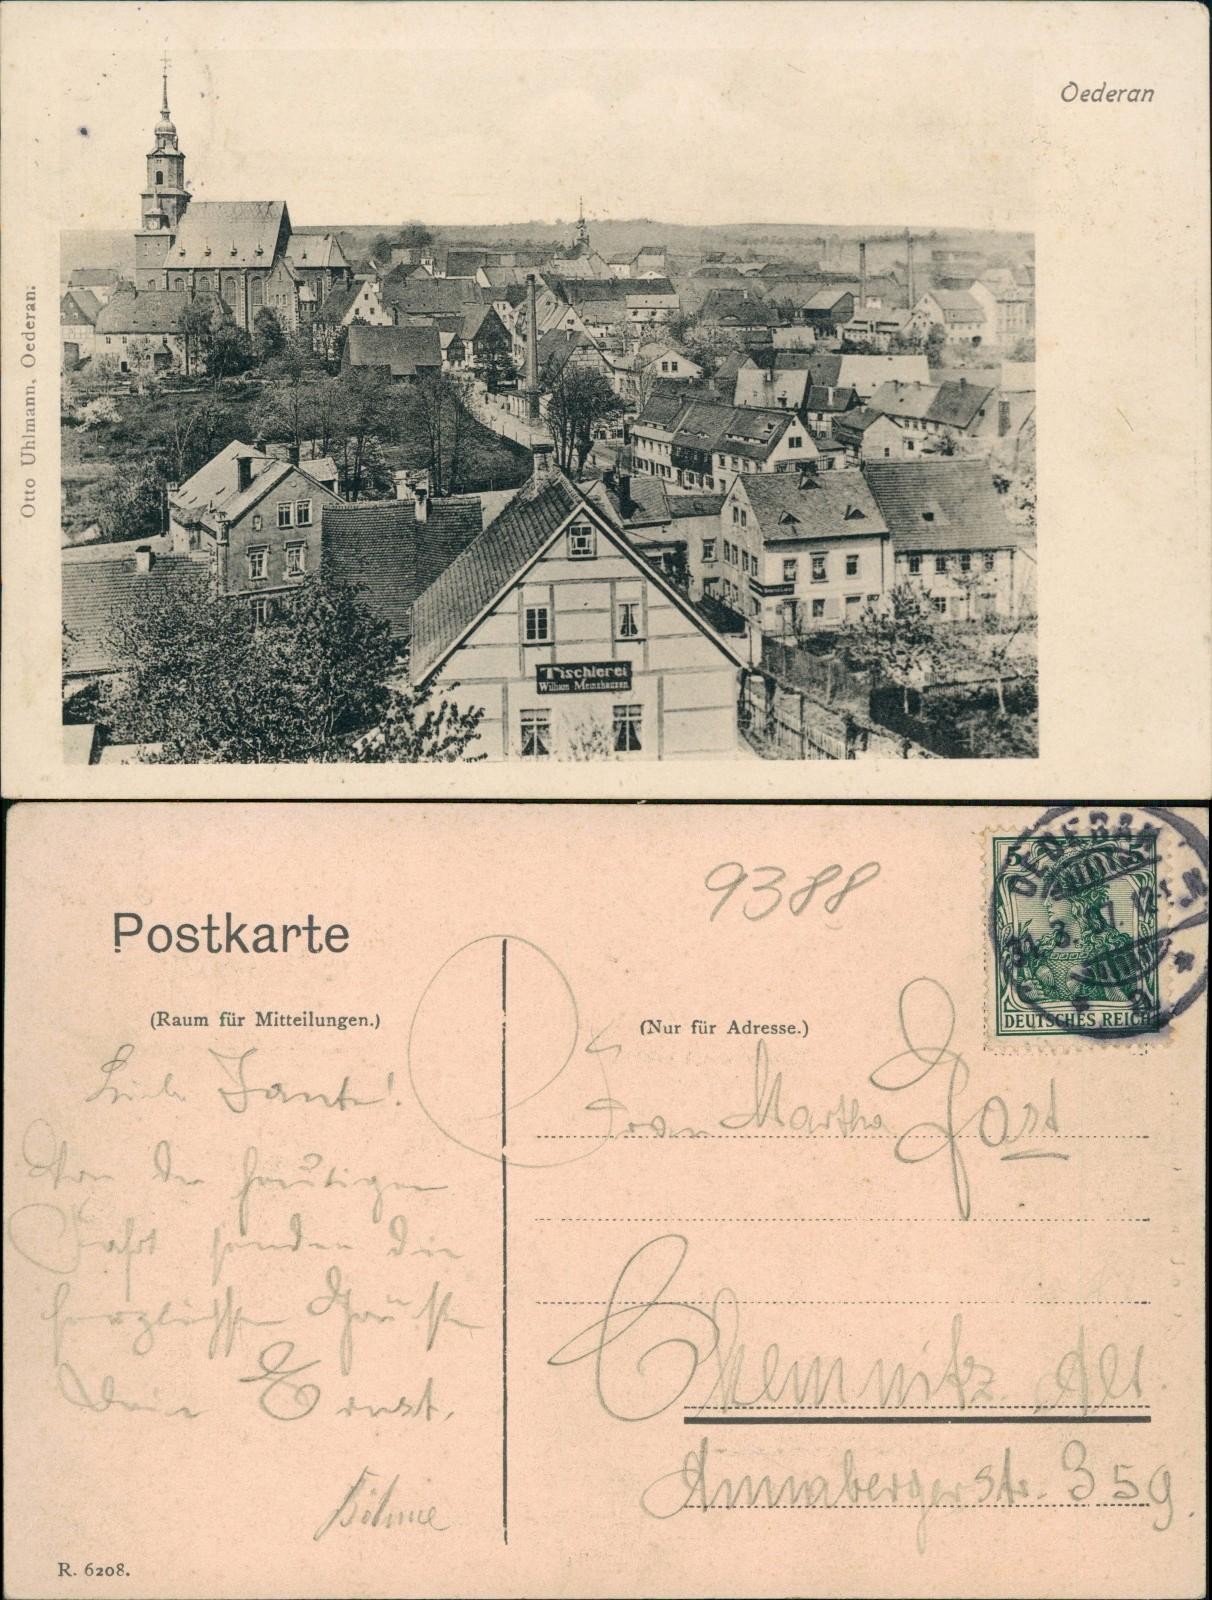 Oederan
Otto Uhlmann, Oederan.
Tischlerei
William Meinzhausen
Postkarte
(Raum für Mitteilungen.)
(Nur für Adresse.)
9388
5 5
DEUTSCHES REICH
OEDERAN
31. 3. 07. 12-1 N
Liebe Tante!
Von der heutigen
Fahrt senden die
herzlichsten Grüße
Dein Ernst.
Böhme
Frau Martha Jost
Chemnitz Alt.
Annabergerstr. 359.
R. 6208.